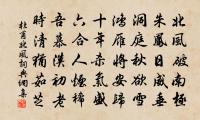 北風破南極
朱鳳日威垂
洞庭秋欲雪
鴻雁將安歸
十年殺氣盛
六合人煙稀
吾慕漢初老
時清猶茹芝
杜甫北風詞典網集